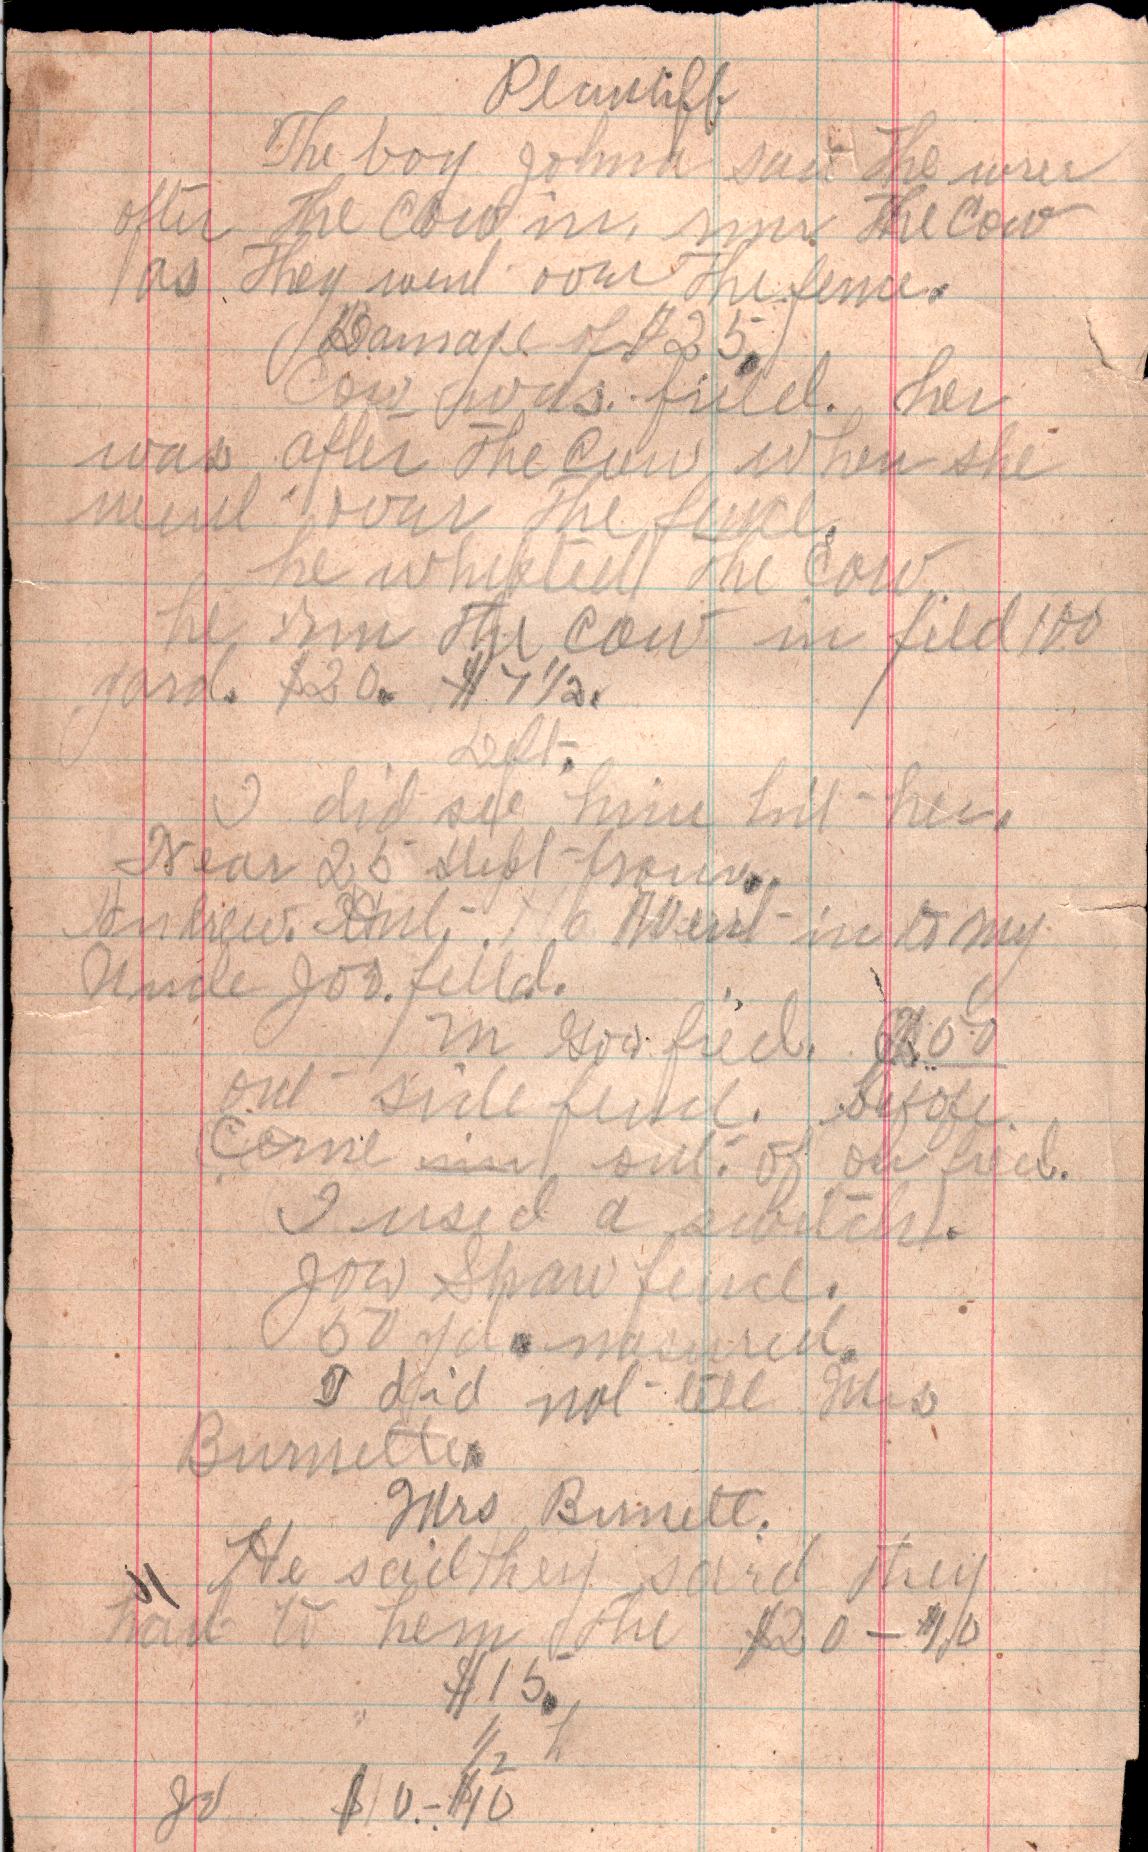 Plantiff
The boy John saw the were
after the cow in, run the cow
as they went over the fence.
Damage of $25.
Cow was. field. her
was after the cow when she
went over the fence.
he whipted the cow
he run the cow in field 100
yard. $20. $7 1/2.
Deft.
I did see him hit her.
Near 25 stept from.
Andrew. went in to my
Uncle Joo. felld.
in Joo field. 200
out side fence. before.
Come in out of our field.
I used a switch.
Jow Shaw fence.
50 yd. masured.
I did not tell Mrs
Burnette.
Mrs Burnett.
He said they said they
had to hem the $20 - $10
$15.
1/2 h
Jo $10.- $10